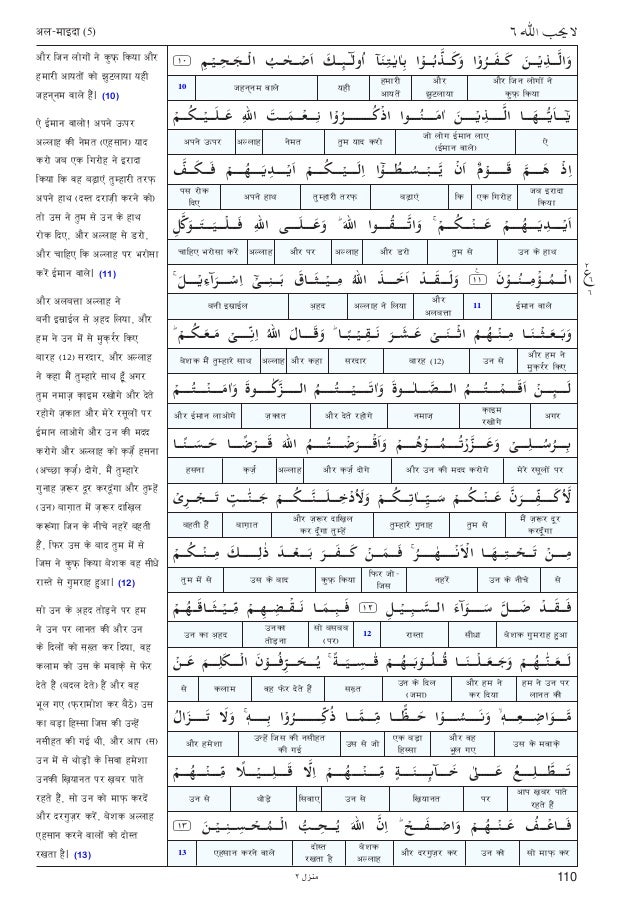 अल-माइदा (5)
لا يحب الله ٦
और जिन लोगों ने कुफ़्र किया और
हमारी आयतों को झुटलाया यही
जहन्नम वाले हैं। (10)
ऐ ईमान वालो! अपने ऊपर
अल्लाह की नेमत (एहसान) याद
करो जब एक गिरोह ने इरादा
किया कि वह बढ़ाएं तुम्हारी तरफ़
अपने हाथ (दस्त दराज़ी करने को)
तो उस ने तुम से उन के हाथ
रोक दिए, और अल्लाह से डरो,
और चाहिए कि अल्लाह पर भरोसा
करें ईमान वाले। (11)
और अलबत्ता अल्लाह ने
बनी इस्राईल से अ़हद लिया, और
हम ने उन में से मुक़र्रर किए
बारह (12) सरदार, और अल्लाह
ने कहा मैं तुम्हारे साथ हूँ अगर
तुम नमाज़ क़ाइम रखोगे और देते
रहोगे ज़कात और मेरे रसूलों पर
ईमान लाओगे और उन की मदद
करोगे और अल्लाह को क़र्ज़े हसना
(अच्छा क़र्ज़) दोगे, मैं तुम्हारे
गुनाह ज़रूर दूर करदूंगा और तुम्हें
(उन) बाग़ात में ज़रूर दाख़िल
करूंगा जिन के नीचे नहरें बहती
हैं, फिर उस के बाद तुम में से
जिस ने कुफ़्र किया बेशक वह सीधे
रास्ते से गुमराह हुआ। (12)
सो उन के अ़हद तोड़ने पर हम
ने उन पर लानत की और उन
के दिलों को सख़्त कर दिया, वह
कलाम को उस के मवाक़े से फेर
देते हैं (बदल देते) हैं और वह
भूल गए (फ़रामोश कर बैठे) उस
का बड़ा हिस्सा जिस की उन्हें
नसीहत की गई थी, और आप (स)
उन में से थोड़ों के सिवा हमेशा
उनकी ख़ियानत पर ख़बर पाते
रहते हैं, सो उन को माफ़ करदें
और दरगुज़र करें, बेशक अल्लाह
एहसान करने वालों को दोस्त
रखता है। (13)
وَالَّذِيْنَ كَفَرُوْا وَكَذَّبُوْا بِاٰيٰتِنَآ اُولٰٓئِكَ اَصْحٰبُ الْجَحِيْمِ ١٠
10 जहन्नम वाले यही हमारी आयतें और झुटलाया और जिन लोगों ने कुफ़्र किया
يٰٓاَيُّهَا الَّذِيْنَ اٰمَنُوا اذْكُرُوْا نِعْمَتَ اللّٰهِ عَلَيْكُمْ
अपने ऊपर अल्लाह नेमत तुम याद करो जो लोग ईमान लाए (ईमान वाले) ऐ
اِذْ هَمَّ قَوْمٌ اَنْ يَّبْسُطُوْٓا اِلَيْكُمْ اَيْدِيَهُمْ فَكَفَّ
पस रोक दिए अपने हाथ तुम्हारी तरफ़ बढ़ाएं कि एक गिरोह जब इरादा किया
اَيْدِيَهُمْ عَنْكُمْ ۚ وَاتَّقُوا اللّٰهَ ؕ وَعَلَى اللّٰهِ فَلْيَتَوَكَّلِ
चाहिए भरोसा करें अल्लाह और पर अल्लाह और डरो तुम से उन के हाथ
الْمُؤْمِنُوْنَ ١١ وَلَقَدْ اَخَذَ اللّٰهُ مِيْثَاقَ بَنِيْٓ اِسْرَآءِيْلَ ۚ
बनी इस्राईल अ़हद अल्लाह ने लिया और अलबत्ता 11 ईमान वाले
٢ ع ٦ ٦
وَبَعَثْنَا مِنْهُمُ اثْنَيْ عَشَرَ نَقِيْبًا ؕ وَقَالَ اللّٰهُ اِنِّيْ مَعَكُمْ ؕ
बेशक मैं तुम्हारे साथ अल्लाह और कहा सरदार बारह (12) उन से और हम ने मुक़र्रर किए
لَئِنْ اَقَمْتُمُ الصَّلٰوةَ وَاٰتَيْتُمُ الزَّكٰوةَ وَاٰمَنْتُمْ
और ईमान लाओगे ज़कात और देते रहोगे नमाज़ क़ाइम रखोगे अगर
بِرُسُلِيْ وَعَزَّرْتُمُوْهُمْ وَاَقْرَضْتُمُ اللّٰهَ قَرْضًا حَسَنًا
हसना क़र्ज़ अल्लाह और क़र्ज़ दोगे और उन की मदद करोगे मेरे रसूलों पर
لَّاُكَفِّرَنَّ عَنْكُمْ سَيِّاٰتِكُمْ وَلَاُدْخِلَنَّكُمْ جَنّٰتٍ تَجْرِيْ
बहती हैं बाग़ात और ज़रूर दाख़िल कर दूंगा तुम्हें तुम्हारे गुनाह तुम से मैं ज़रूर दूर करदूंगा
مِنْ تَحْتِهَا الْاَنْهٰرُ ۚ فَمَنْ كَفَرَ بَعْدَ ذٰلِكَ مِنْكُمْ
तुम में से उस के बाद कुफ़्र किया फिर जो - जिस नहरें उन के नीचे से
فَقَدْ ضَلَّ سَوَآءَ السَّبِيْلِ ١٢ فَبِمَا نَقْضِهِمْ مِّيْثَاقَهُمْ
उन का अ़हद उनका तोड़ना सो बसबब (पर) 12 रास्ता सीधा बेशक गुमराह हुआ
لَعَنّٰهُمْ وَجَعَلْنَا قُلُوْبَهُمْ قٰسِيَةً ۚ يُحَرِّفُوْنَ الْكَلِمَ عَنْ
से कलाम वह फेर देते हैं सख़्त उन के दिल (जमा) और हम ने कर दिया हम ने उन पर लानत की
مَّوَاضِعِهٖ ۙ وَنَسُوْا حَظًّا مِّمَّا ذُكِّرُوْا بِهٖ ۚ وَلَا تَزَالُ
और हमेशा उन्हें जिस की नसीहत की गई उस से जो एक बड़ा हिस्सा और वह भूल गए उस के मवाक़े
تَطَّلِعُ عَلٰى خَآئِنَةٍ مِّنْهُمْ اِلَّا قَلِيْلًا مِّنْهُمْ
उन से थोड़े सिवाए उन से ख़ियानत पर आप ख़बर पाते रहते हैं
فَاعْفُ عَنْهُمْ وَاصْفَحْ ؕ اِنَّ اللّٰهَ يُحِبُّ الْمُحْسِنِيْنَ ١٣
13 एहसान करने वाले दोस्त रखता है बेशक अल्लाह और दरगुज़र कर उन को सो माफ़ कर
منزل ٢
110